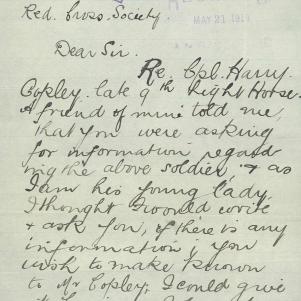 Red Cross Society
MAY 21 191
Dear Sir.
Re. Cpl. Harry
Copley. late 9th Light Horse.
A friend of mine told me,
that you were asking
for information regard
ing the above soldier, & as
I am his young lady,
I thought I would write
& ask you, if there is any
information, you
wish to make known
to Mr Copley, I could give